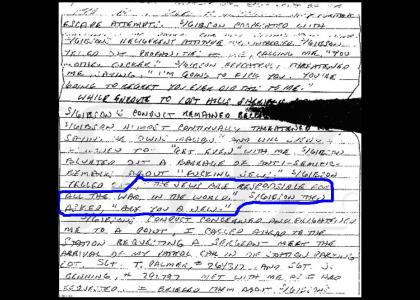 FURTHER
ESCAPE ATTEMPT. S/GIBSON WITH
S/GIBSON'S ATTITUDE S/GIBSON
YELLED OUT PROFANITIES ME, CALLING ME, "YOU
MOTHER FUCKER". S/GIBSON REPEATEDLY THREATENED
ME SAYING, "I'M GOING TO FUCK YOU. YOU'RE
GOING TO REGRET YOU EVER DID THIS TO ME."
WHILE ENROUTE TO LOST HILLS
S/GIBSON'S CONDUCT REMAINED
S/GIBSON ALMOST CONTINUALLY THREATENED ME
SAYING HE "OWNS MALIBU" AND WILL
"GET EVEN" WITH ME. S/GIBSON
BLURTED OUT A BARRAGE OF ANTI-SEMITIC
REMARKS ABOUT "FUCKING JEWS". S/GIBSON
YELLED THE JEWS ARE RESPONSIBLE FOR
ALL THE WARS IN THE WORLD." S/GIBSON THEN
ASKED, "ARE YOU A JEW?"
S/GIBSON'S CONDUCT CONCERNED AND FRIGHTENED
ME TO A POINT, I CALLED AHEAD TO THE
STATION REQUESTING A SERGEANT MEET THE
ARRIVAL OF MY PATROL CAR IN THE STATION PARKING
LOT. SGT. T. PALMER, # AND SGT. J.
# MET WITH ME AS I HAD
REQUESTED. I BRIEFED THEM ABOUT S/GIBSON'S